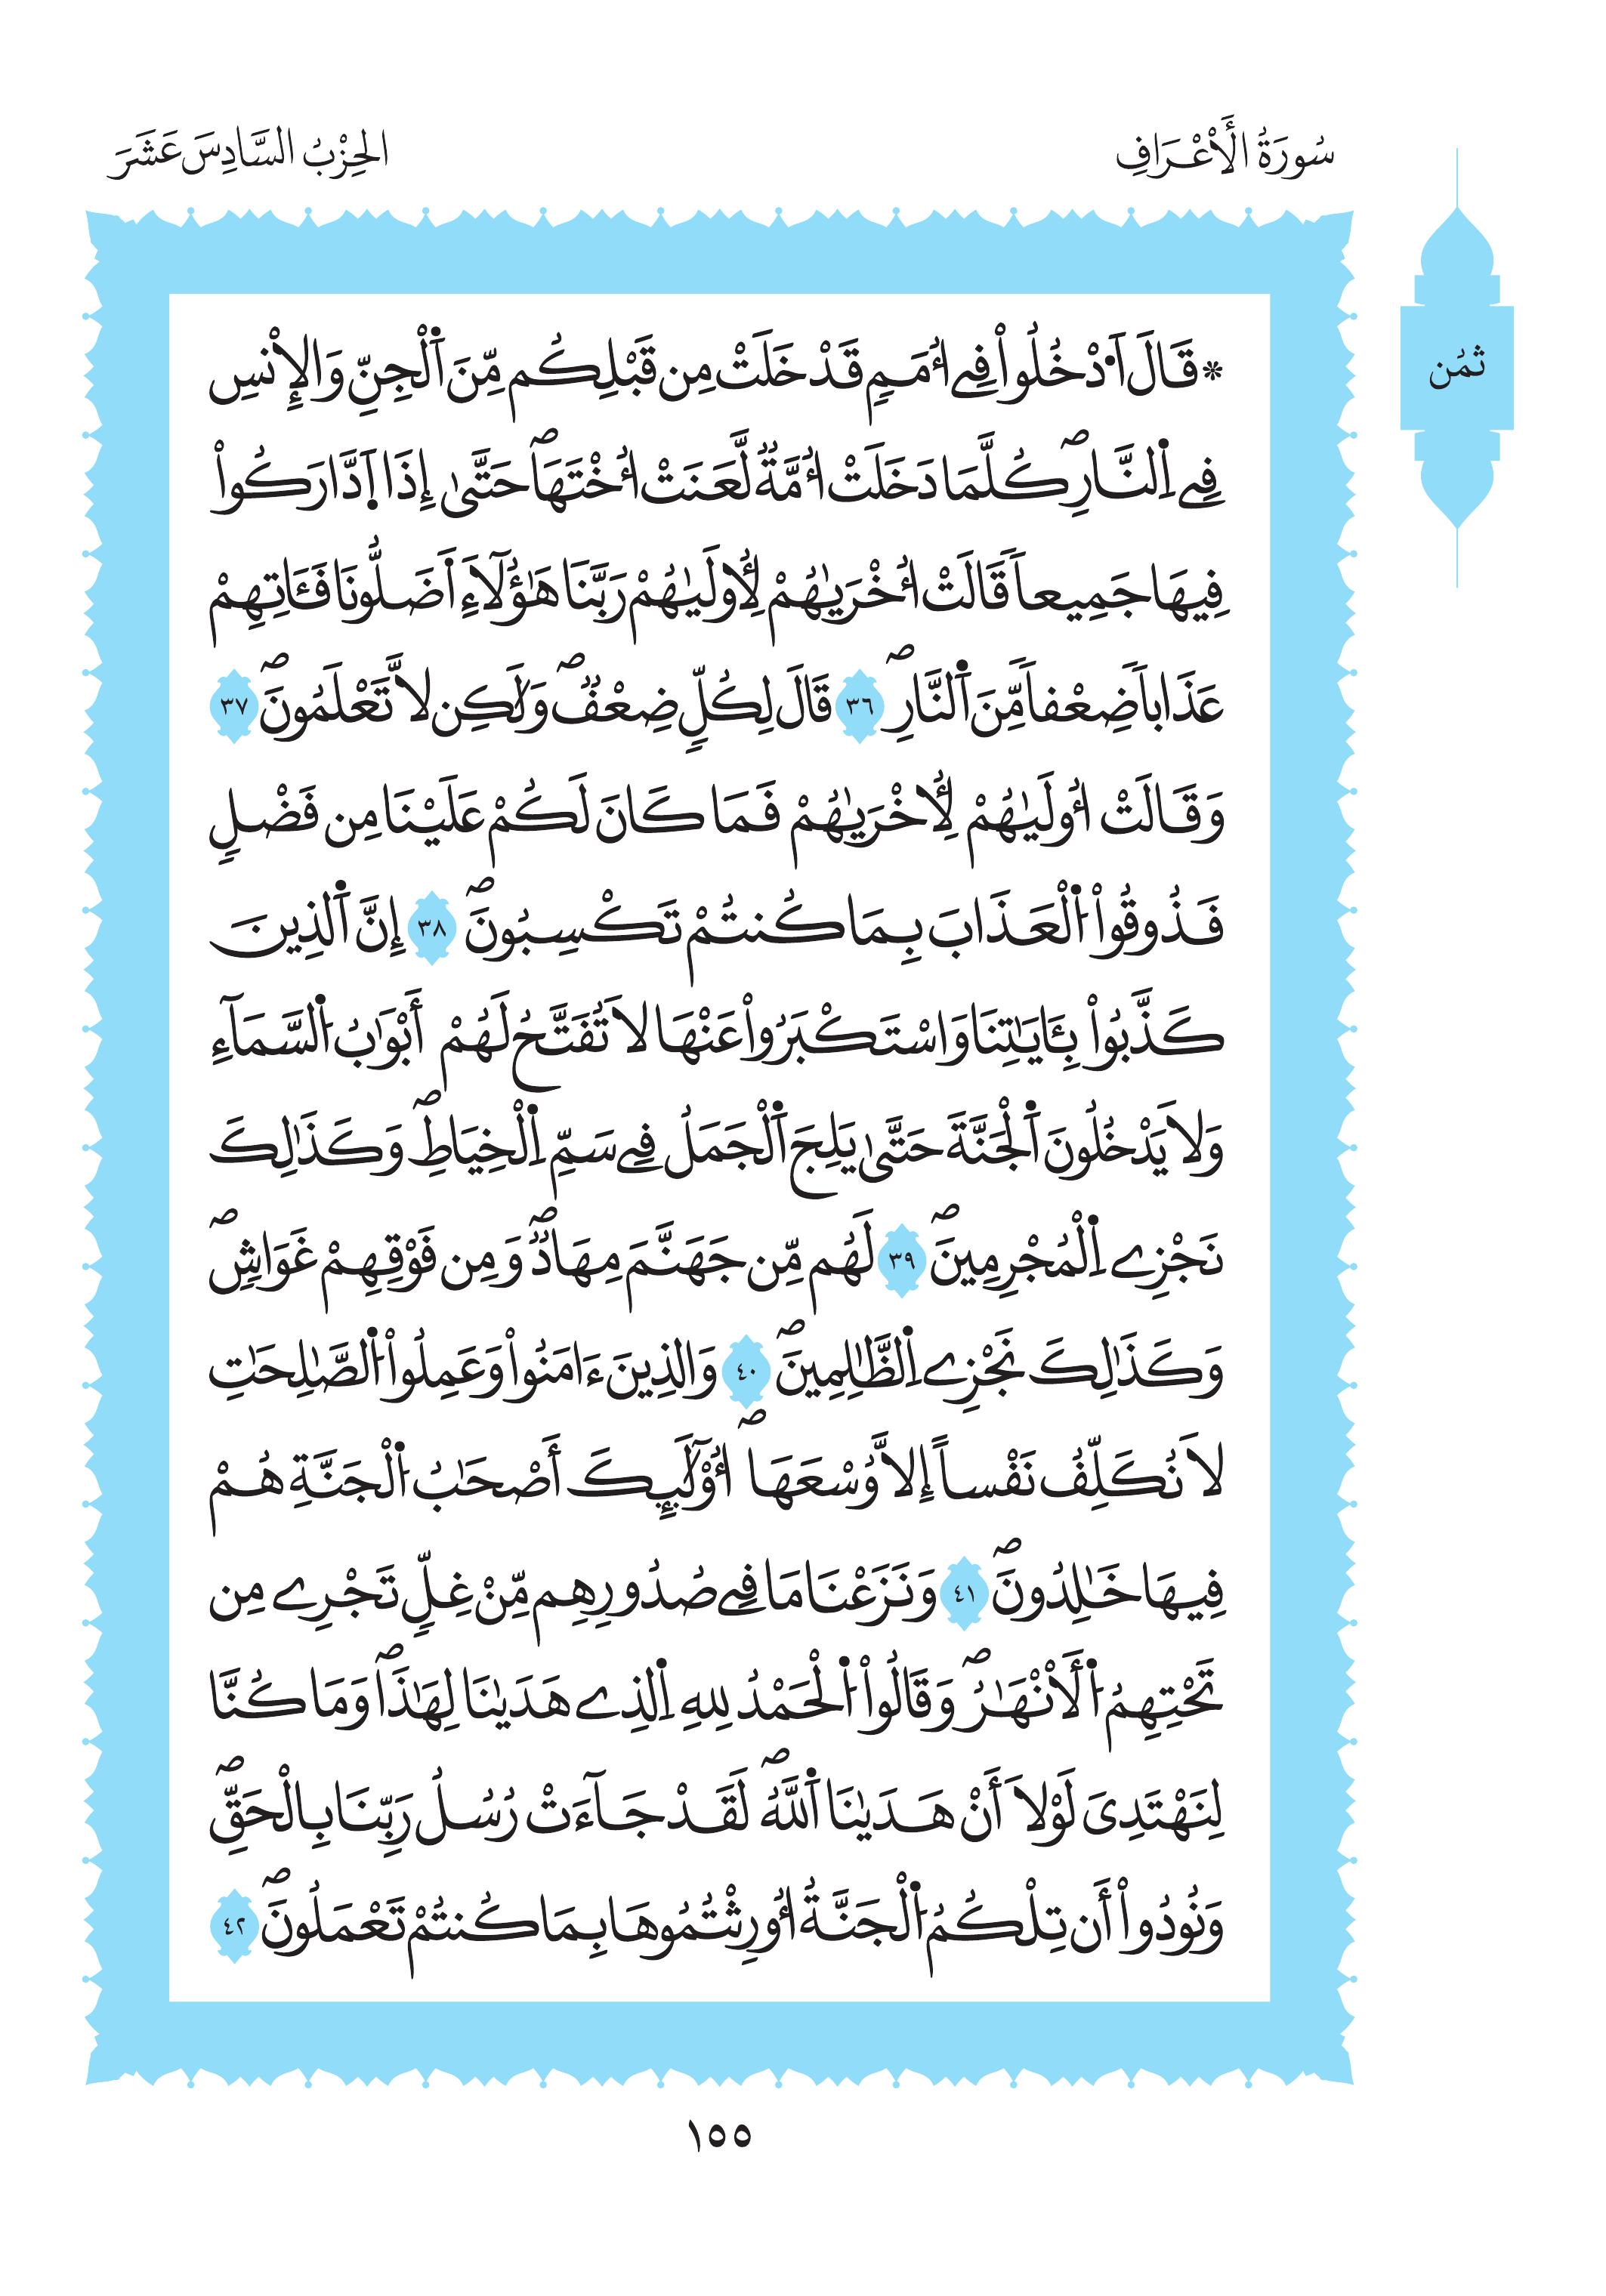 سُورَةُ الْأَعْرَافِ
الحِزْبُ السَّادِسَ عَشَرَ
ثمُن
* قَالَ اَ۟دْخُلُواْ فِےٓ أُمَمٖ قَدْ خَلَتْ مِن قَبْلِكُم مِّنَ اَ۬لْجِنِّ وَالِانْسِ
فِے اِ۬لنّ۪ارِۖ كُلَّمَا دَخَلَتُ امَّةٞ لَّعَنَتُ اخْتَهَاۖ حَتَّىٰٓ إِذَا اَ۪دَّارَكُواْ
فِيهَا جَمِيعاٗ قَالَتُ اخْر۪يٰهُمْ لِأُولَيٰهُمْ رَبَّنَا هَٰٓؤُلَآءِ اَضَلُّونَا فَـَٔاتِهِمْ
عَذَاباٗ ضِعْفاٗ مِّنَ اَ۬لنّ۪ارِۖ ٣٦ قَالَ لِكُلّٖ ضِعْفٞۖ وَلَٰكِن لَّا تَعْلَمُونَۖ ٣٧
وَقَالَتُ اولَيٰهُمْ لِأُخْر۪يٰهُمْ فَمَا كَانَ لَكُمْ عَلَيْنَا مِن فَضْلٖ
فَذُوقُواْ اُ۬لْعَذَابَ بِمَا كُنتُمْ تَكْسِبُونَۖ ٣٨ إِنَّ اَ۬لذِينَ
كَذَّبُواْ بِـَٔايَٰتِنَا وَاسْتَكْبَرُواْ عَنْهَا لَا تُفَتَّحُ لَهُمُۥٓ أَبْوَٰبُ اُ۬لسَّمَآءِ
وَلَا يَدْخُلُونَ اَ۬لْجَنَّةَ حَتَّىٰ يَلِجَ اَ۬لْجَمَلُ فِے سَمِّ اِ۬لْخِيَاطِۖ وَكَذَٰلِكَ
نَجْزِے اِ۬لْمُجْرِمِينَۖ ٣٩ لَهُم مِّن جَهَنَّمَ مِهَادٞۖ وَمِن فَوْقِهِمْ غَوَاشٖۖ
وَكَذَٰلِكَ نَجْزِے اِ۬لظَّٰلِمِينَۖ ٤٠ وَالذِينَ ءَامَنُواْ وَعَمِلُواْ اُ۬لصَّٰلِحَٰتِ
لَا نُكَلِّفُ نَفْساً اِلَّا وُسْعَهَآۖ أُوْلَٰٓئِكَ أَصْحَٰبُ اُ۬لْجَنَّةِ هُمْ
فِيهَا خَٰلِدُونَۖ ٤١ وَنَزَعْنَا مَا فِے صُدُورِهِم مِّنْ غِلّٖ تَجْرِے مِن
تَحْتِهِمُ اُ۬لَانْهَٰرُۖ وَقَالُواْ اُ۬لْحَمْدُ لِلهِ اِ۬لذِے هَد۪يٰنَا لِهَٰذَاۖ وَمَا كُنَّا
لِنَهْتَدِيَ لَوْلَآ أَنْ هَد۪يٰنَا اَ۬للَّهُۖ لَقَدْ جَآءَتْ رُسُلُ رَبِّنَا بِالْحَقِّۖ
وَنُودُوٓاْ أَن تِلْكُمُ اُ۬لْجَنَّةُ أُورِثْتُمُوهَا بِمَا كُنتُمْ تَعْمَلُونَۖ ٤٢
١٥٥